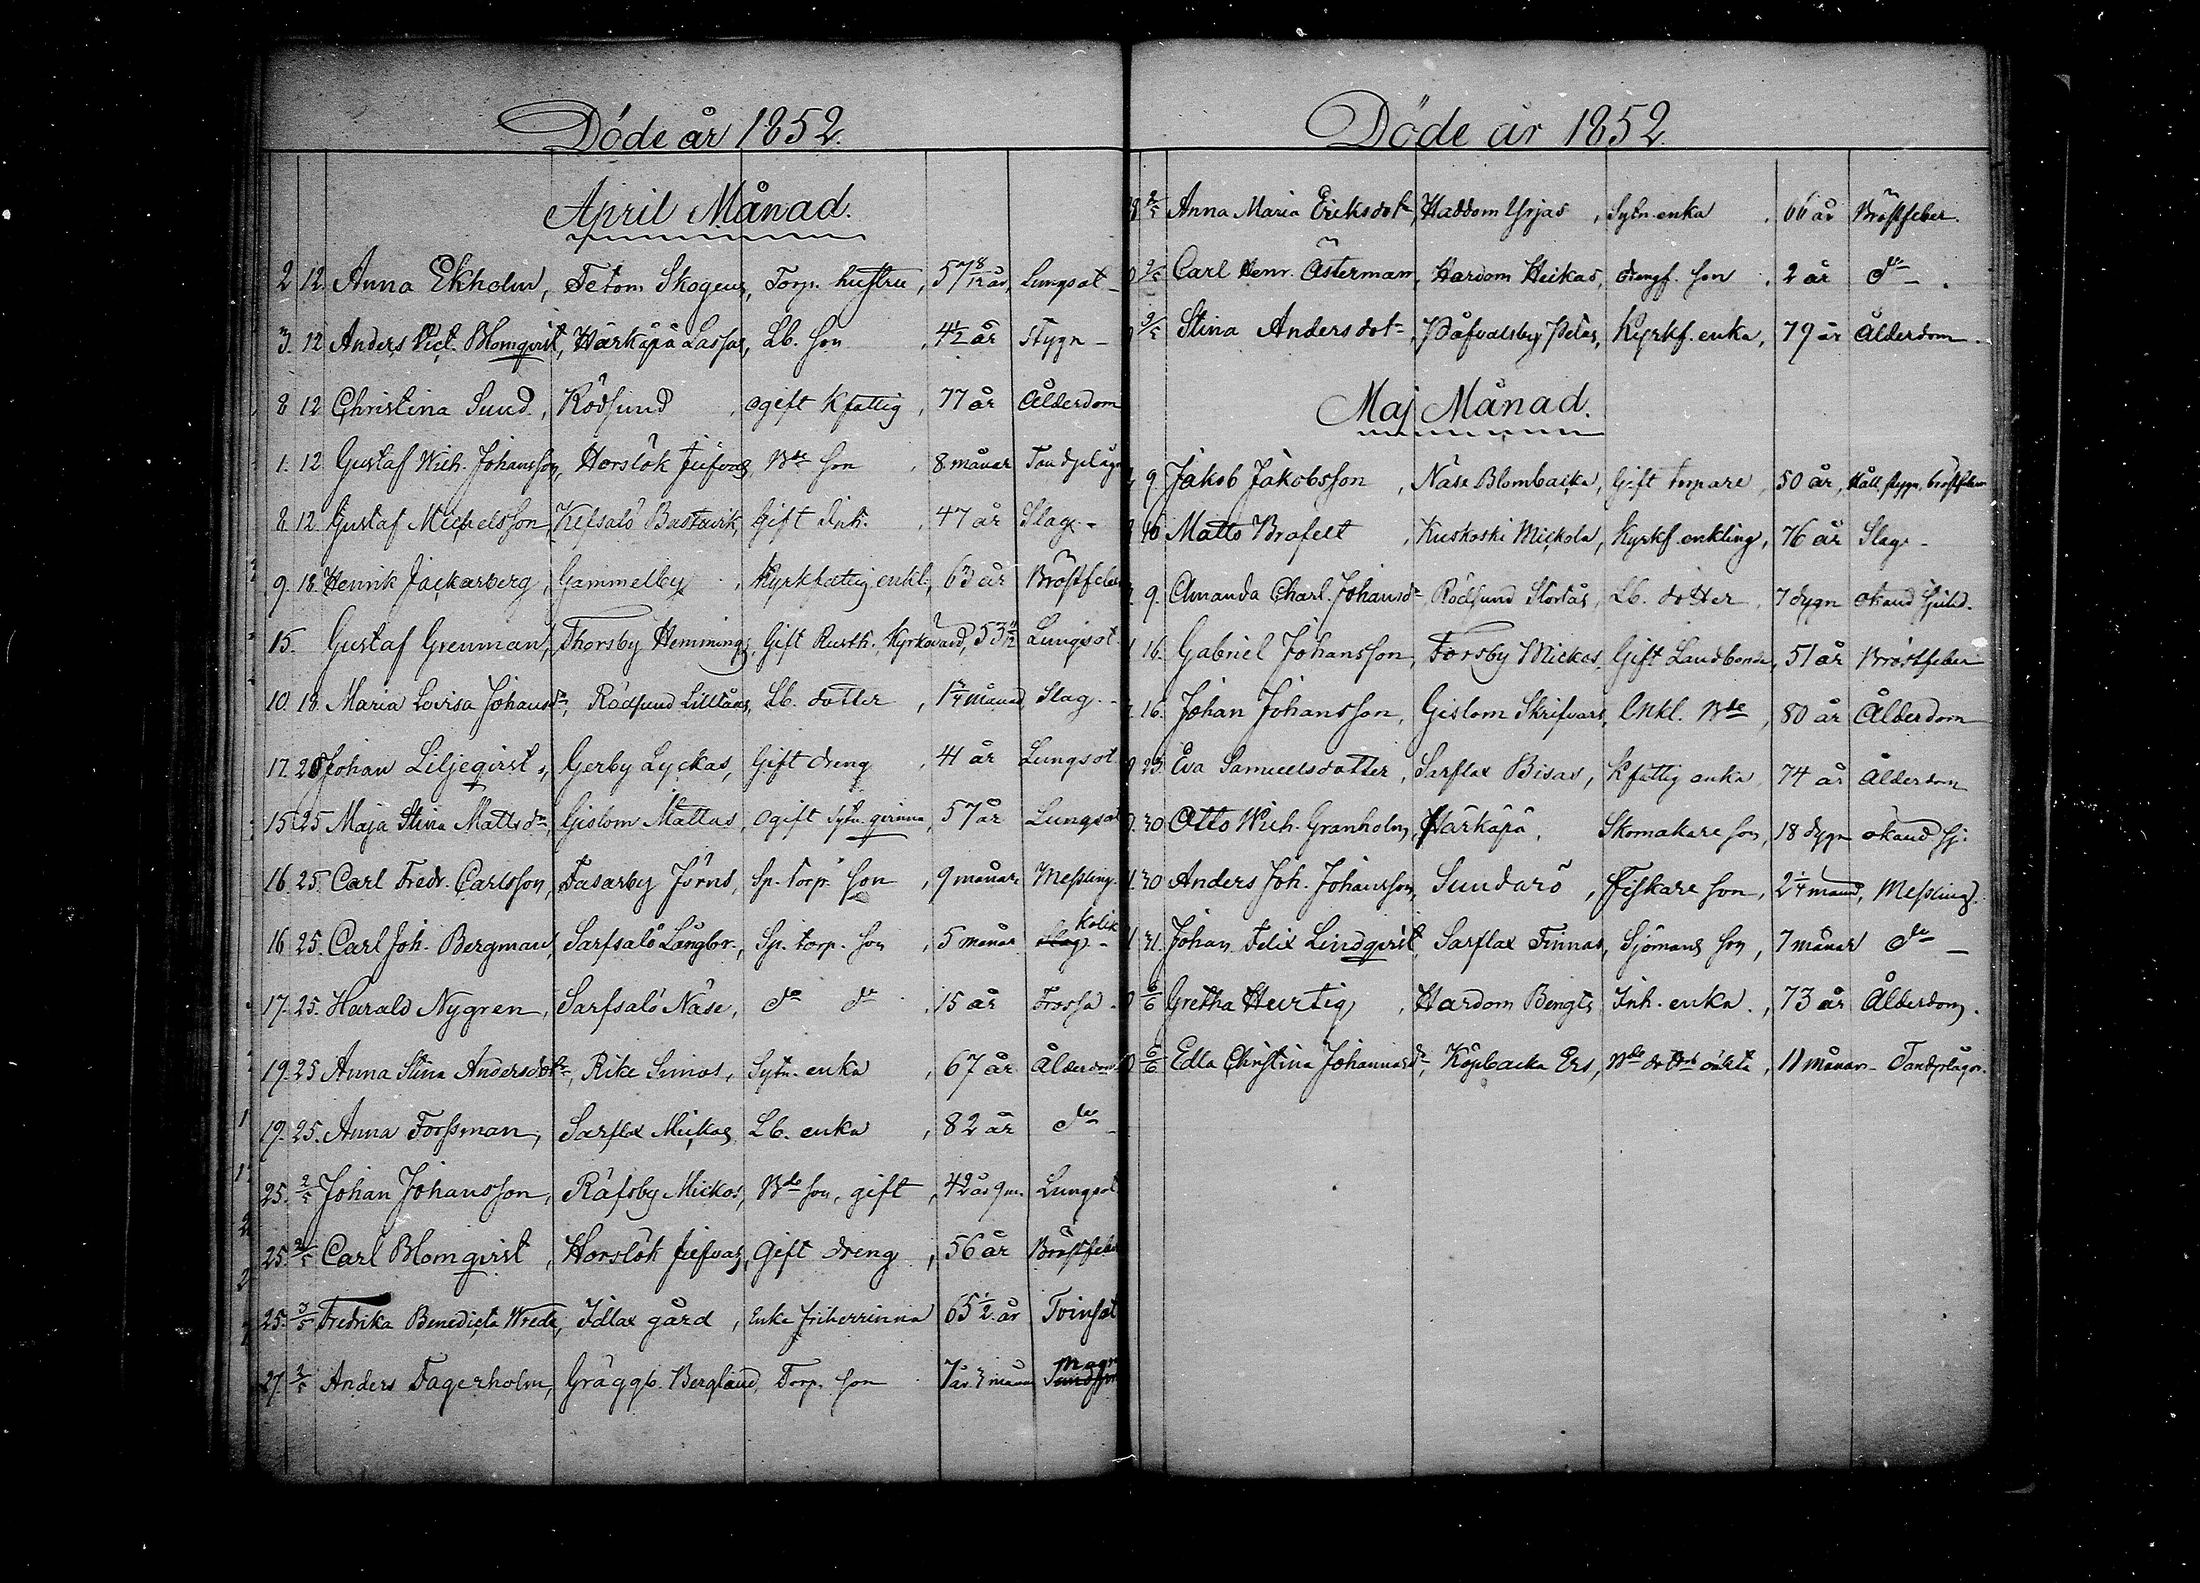 Döde år 1852.
April Månad.
2 12. Anna Ekholm, Tetom Skogeus, Torp. hustru, 57 8/12 år, Lungsot -
3. 12 Anders Vict. Blomqvist, Härkäpä Lassas, Lb. son, 4½ år Stygn -
8 12 Christina Sund., Rödsund, ogift Kfattig, 77 år Ålderdom
1. 12 Gustaf Wilh. Johansson, Horslök Jiefvas, Bde son, 8 månar Tandplåg
8. 12 Gustaf Michelsson, Kejsalö Bastuvik, Gift Inh., 47 år Slag. -
9. 18. Henrik Jackarberg, Gammelby, Kyrkfattig enkl., 63 år Bröstfeber
15. Gustaf Grenman, Thorsby Hemmings, Gift Rusth. Kyrkovärd, 53 11/12 Lungsot
10. 18. Maria Lovisa Johansdr, Rödsund Lilltåns, Lb. dotter, 1¾ månad Slag. -
17. 25 Johan Liljeqvist, Gerby Lyckas, Gift dreng, 41 år Lungsot
15. 25 Maja Stina Mattsdr, Gislom Mattas, ogift Sytn. girinna, 57 år Lungsot
16. 25. Carl Fredr. Carlsson, Tasarby Jörns, Sp. torp. son, 9 månar Messling.
16 25. Carl Joh. Bergman, Sarfsalö Långbr., Sp. torp. son, 5 månar Kolik -
17. 25. Harald Nygren, Sarfsalö Näse, do do, 15 år Frossa.
19. 25 Anna Stina Andersdotr, Rike Simos, Sytn. enka, 67 år Ålderdom
19. 25. Anna Forssman, Sarflax Mickas, Lb. enka, 82 år do -
25. 2/5 Johan Johansson, Räfsby Mickos, Bde son, gift, 42 år 9 m. Lungsot
25. 2/5 Carl Blomqvist, Horslök Jiefvas, Gift dreng, 56 år Bröstfeber
25. 3/5 Fredrika Benedicta Wrede, Idlax gård, Enke friherrinna 65½ år Tvinsot
27. 2/5 Anders Fagerholm, Gräggb. Bergland, Torp. son 7 år 3 månar
Döde år 1852.
2/5 Anna Maria Eriksdotr, Haddom Yrjas, Sytn. enka, 66 år Bröstfeber.
9/5 Carl Henr. Österman, Hardom Heikas, drengf. son, 2 år do -.
9/5 Stina Andersdotr, Påfvalsby Petas, Kyrkf. enka, 79 år Ålderdom.
Maj Månad.
9. Jakob Jakobsson, Näse Blombacka, Gift torpare, 50 år, Håll, stygn, bröstfeber
10. Matts Brafelt, Kuskoski Mickola, Kyrkf. enkling, 76 år Slag. -
9. Amanda Charl. Johansdr Rödsund Stortås, Lb. dotter, 7 dygn okänd sjukd.
16. Gabriel Johansson, Forsby Mickos, Gift Landbonde, 51 år Bröstfeber
16. Johan Johansson, Gislom Skrifvars, Enkl. Bde, 80 år Ålderdom
23. Eva Samuelsdotter, Sarflax Bisas, Kfattig enka, 74 år Ålderdom
30. Otto Wilh. Granholm, Härkäpä, Skomakare son, 18 dygn okänd sj.
30 Anders Joh. Johansson, Sundarö, Fiskare son, 2¼ månad, Messling.
31. Johan Felix Lindqvist, Sarflax Finnas, Sjömans son, 7 månar do -
6/6 Gretha Hurtig, Hardom Bengts Inh. enka, 73 år Ålderdom.
6/6 Edla Christina Johannesdr, Köpbacka Ers, Bde dr oäkta, 11 månar Tandplågor.